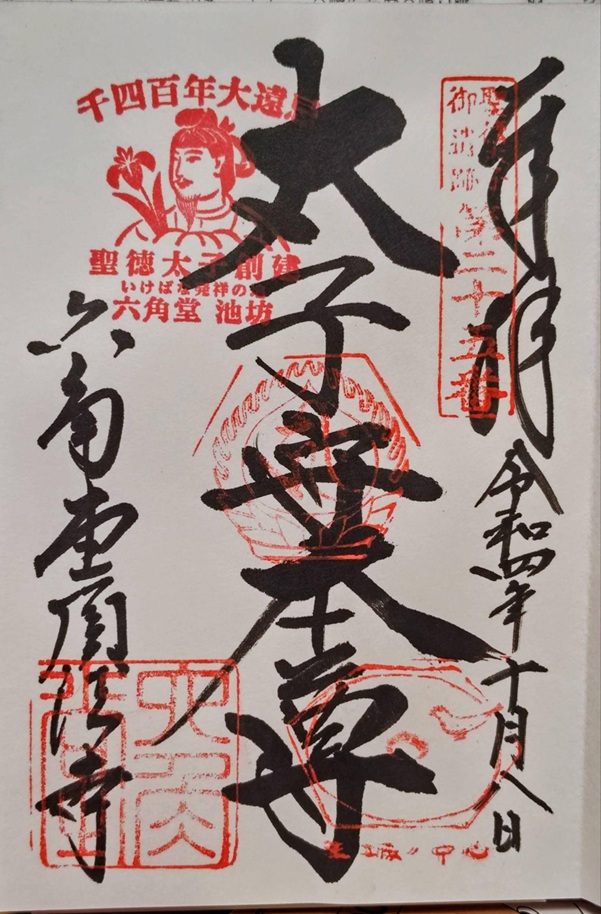 奉拝
令和四年十月八日
聖徳太子
御遺跡 第二十五番
太子守本尊
千四百年大遠忌
聖徳太子創建
いけばな発祥の地
六角堂 池坊
六角堂頂法寺
王城ノ中心